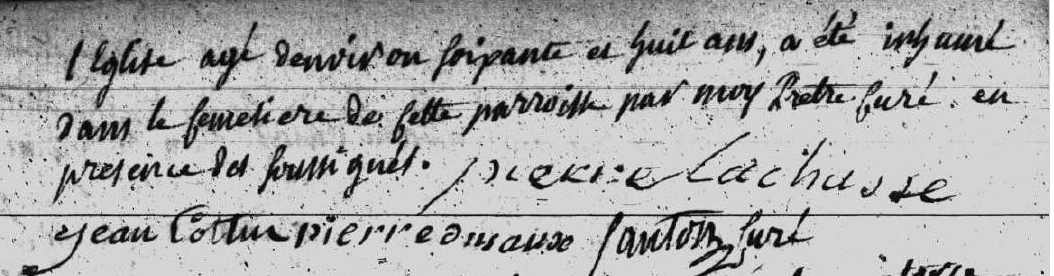 l'Eglise agé denviron soixante et huit ans, a été inhumé
dans le semetiere de sette parroisse par moy Prêtre curé en
presence des soussignés. pierre Lachasse
jean Cottin pierre curé